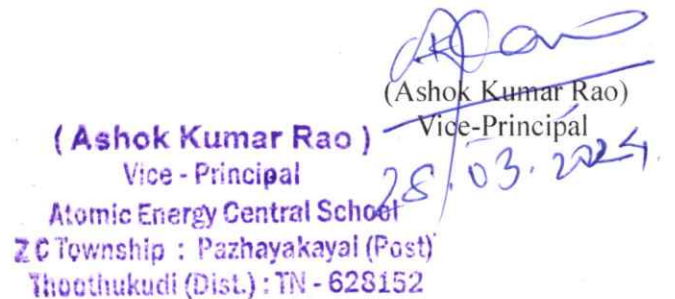 (Ashok Kumar Rao)
Vice-Principal
28/03.2024.
( Ashok Kumar Rao )
Vice - Principal
Atomic Energy Central School
Z C Township : Pazhayakayal (Post)
Thoothukudi (Dist.) : TN - 628152